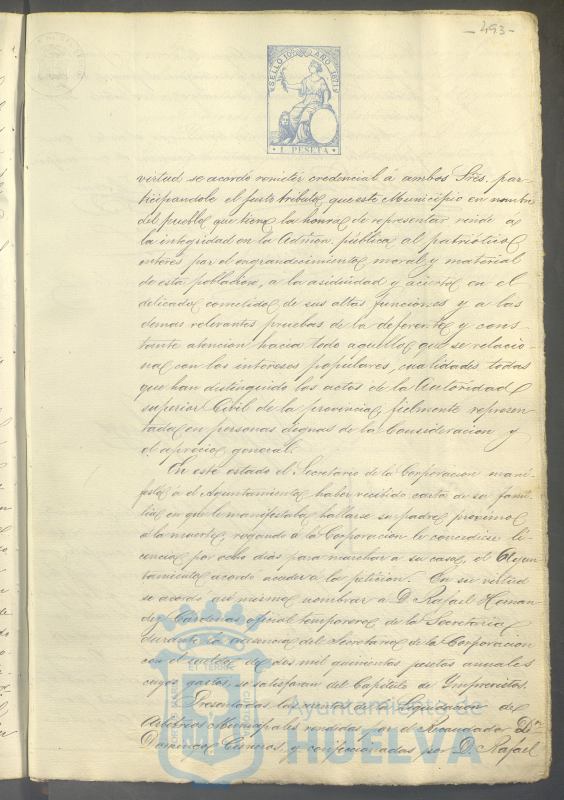 -493-
SELLO 10º AÑO 1871
1 PESETA
virtud se acordó remitir credencial a ambos Sres. par-
ticipandole el justo tributo que este Municipio en nombre
del pueblo que tiene la honra de representar rinde á
la integridad en la Admon. pública al patriótico
interes por el engrandecimiento moral y material
de esta poblacion, a la asiduidad y acierto en el
delicado cometido de sus altas funciones y a las
demas relevantes pruebas de la deferente y cons-
tante atencion hacia todo aquello que se relacio-
na con los intereses populares, cualidades todas
que han distinguido los actos de la Autoridad
superior Civil de la provincia, fielmente represen-
tada en personas dignas de la Consideracion y
el aprecio general.
En este estado el Secretario de la Corporacion mani-
festó á el Ayuntamiento haber recibido carta de su fami-
lia en que le manifestaba hallarse su padre proximo
á la muerte, rogando á la Corporacion le concediese li-
cencia por ocho dias para marchar a su casa, el Ayun-
tamiento acordo acceder a la peticion. En su virtud
se acordo asi mismo nombrar a D. Rafael Hernan-
dez Cárdenas oficial temporero de la Secretaria
durante la ausencia del Secretario de la Corporacion
con el sueldo de dos mil quinientas pesetas anuales
cuyos gastos se satisfaran del Capitulo de Imprevistos.
Presentadas las cuentas de la liquidacion de
Arbitrios Municipales rendidas por el Recaudador Dn.
Domingo Cisneros, y confeccionadas por D. Rafael
Ayuntamiento de
HUELVA